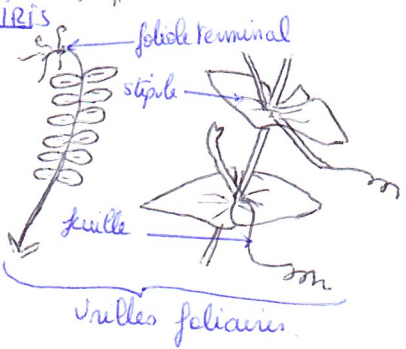 IRIS
foliole terminal
stipule
feuille
Vrilles foliaires